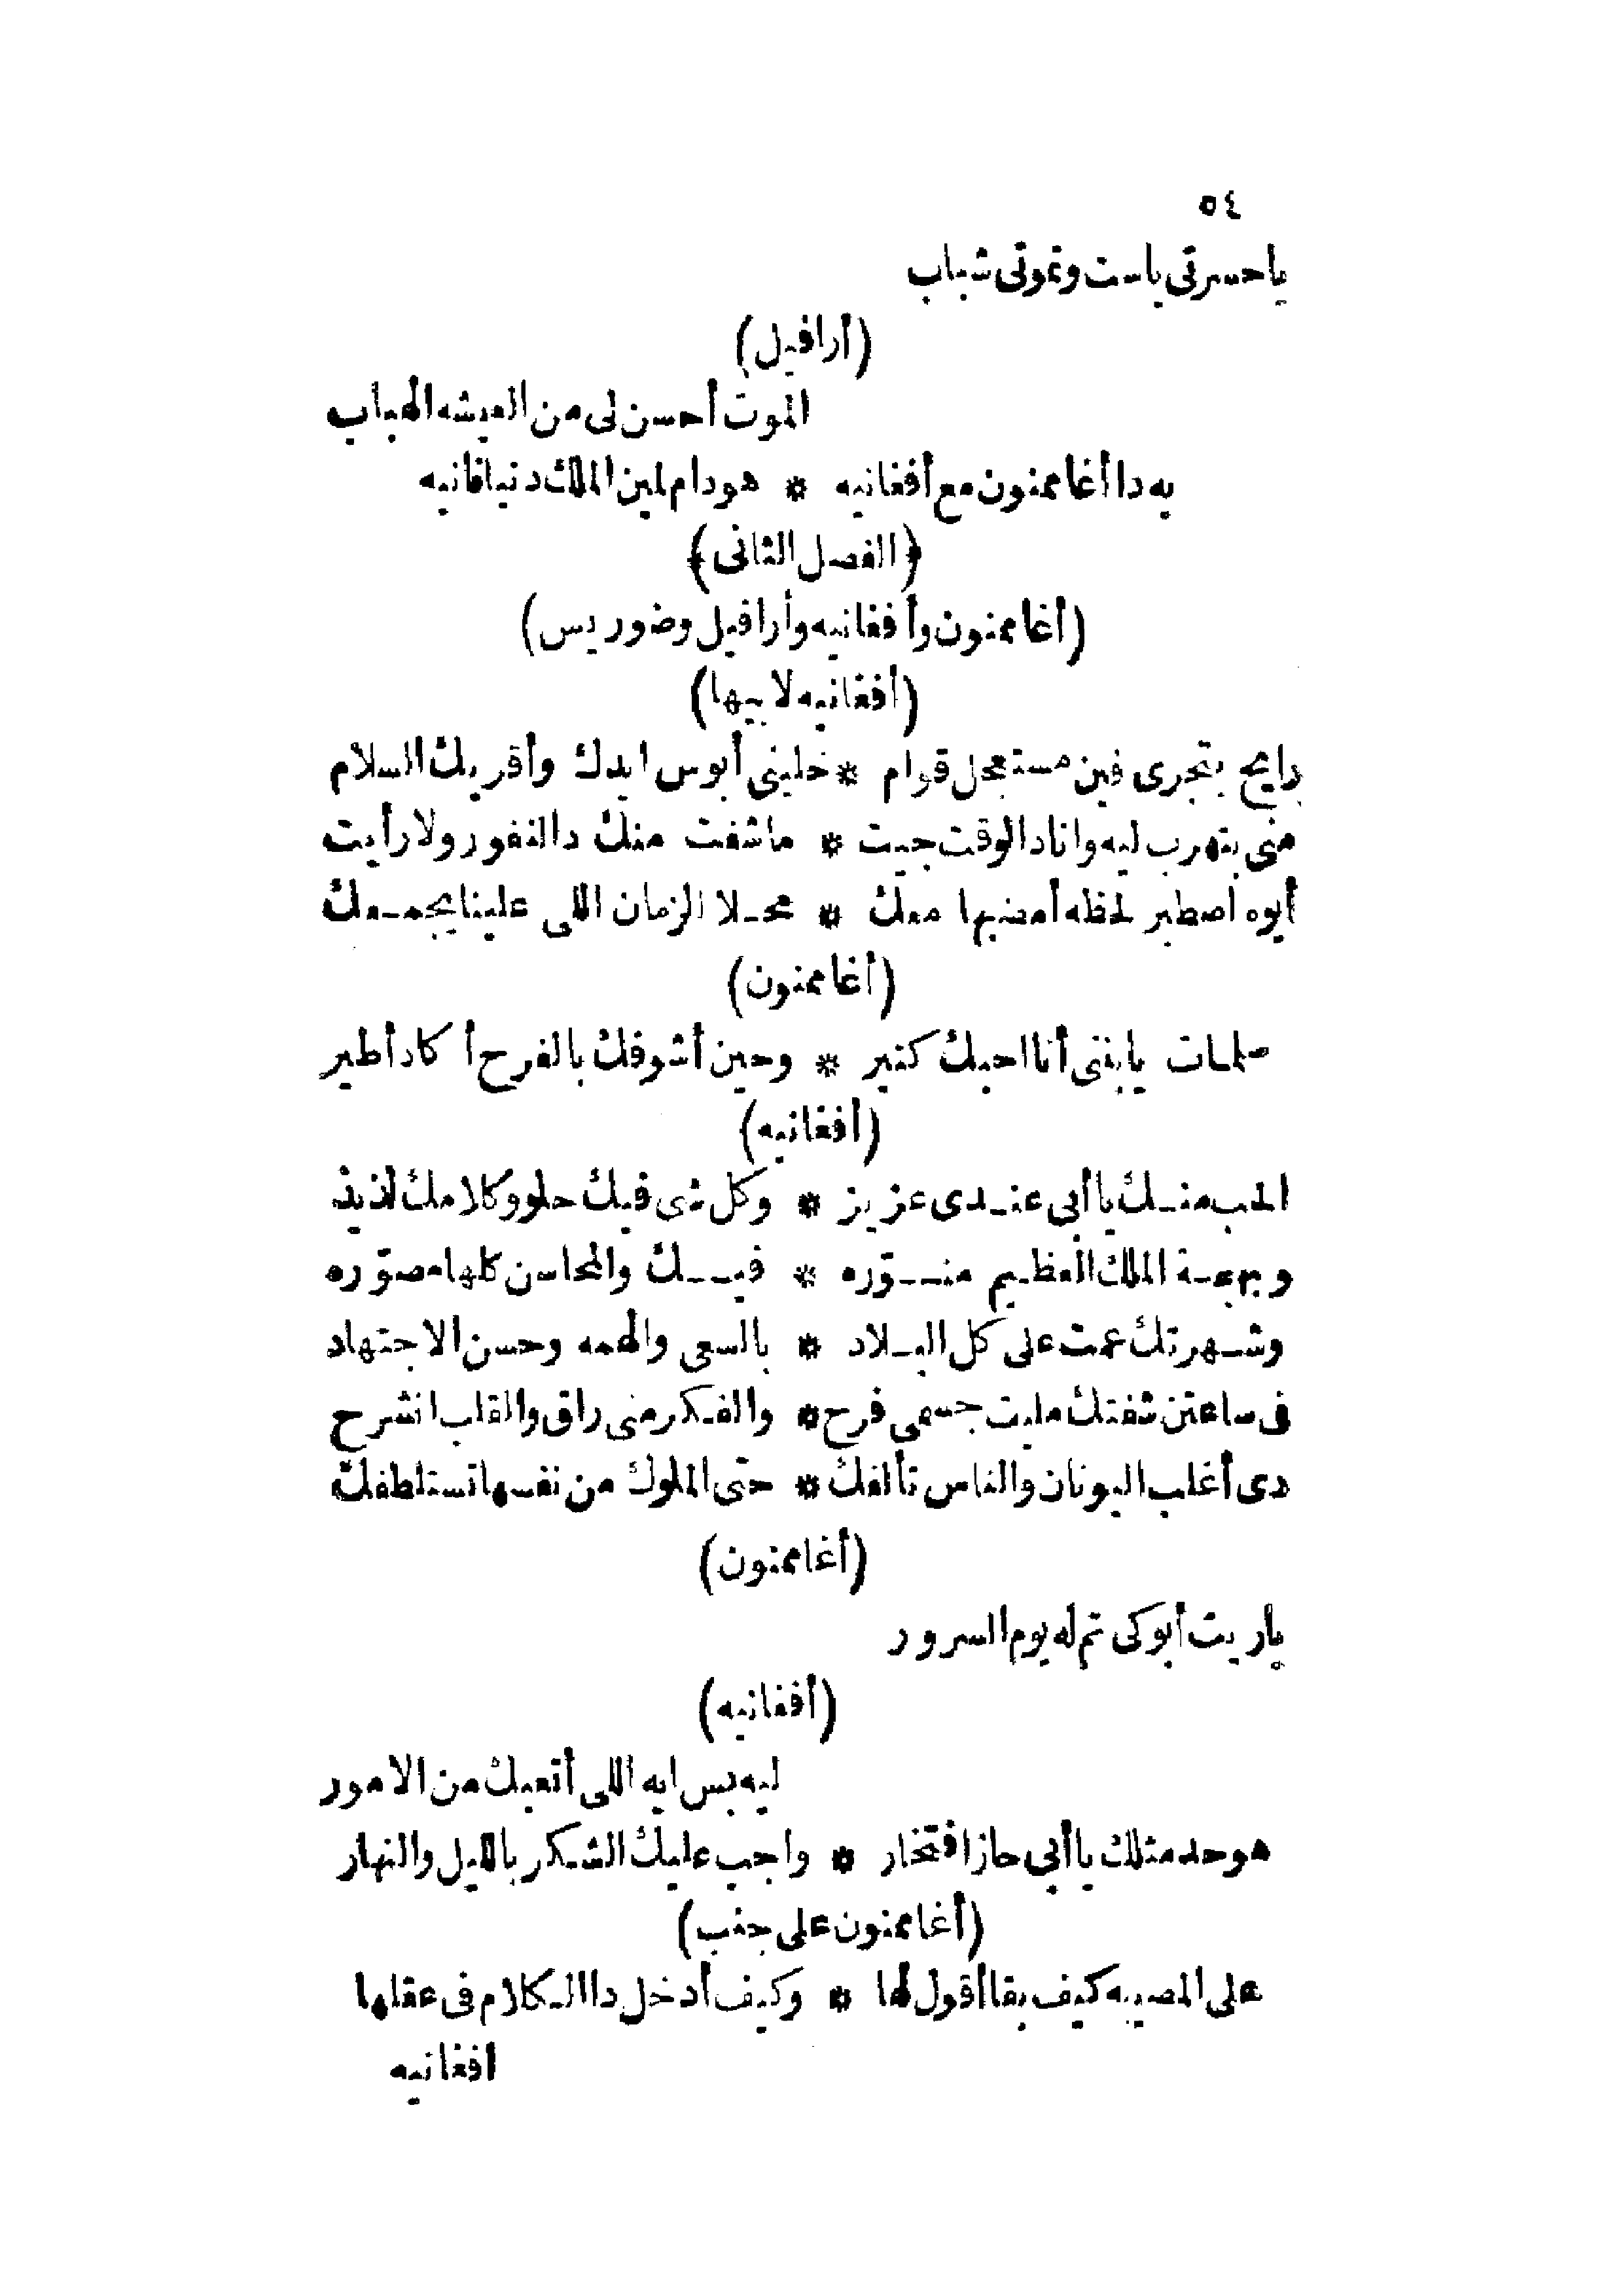 ٥٤
ياحسرتى ياست وتموتى شباب
(أرافيل)
الموت أحسن لى من العيشه الهباب
يه دا أغا ممنون مع أفغانيه * هو دام لمين الملك دنيا فانيه
﴿الفصل الثانى﴾
(أغا ممنون وأفغانيه وأرافيل وضوريس)
(أفغانيه لابيها)
رايح بتجرى فين مستعجل قوام * خلينى أبوس ايدك وأقريك السلام
منى بتهرب ليه وانا دالوقت جيت * ماشفت منك دا النفور ولا رأيت
أيوه اصطبر لحظه أمضيها معك * محلا الزمان اللى علينا يجمعك
(أغا ممنون)
سلمات يابنتى أنا احبك كتير * وحين أشوفك بالفرح أكاد أطير
(أفغانيه)
الحب منك يا أبى عندى عزيز * وكل شى فيك حلو وكلامك لذيذ
وبهجة الملك العظيم منوره * فيك والمحاسن كلها مصوّره
وشهرتك عمت على كل البلاد * بالسعى والهمه وحسن الاجتهاد
فى ساعتن شفتك مليت جسمى فرح * والفكر منى راق والقلب انشرح
دى أغلب اليونان والناس تألفك * حتى الملوك من نفسها تستلطفك
(أغا ممنون)
ياريت أبوكى تم له يوم السرور
(أفغانيه)
ليه بس ايه اللى أتعبك من الامور
هو حد مثلك يا أبى حاز افتخار * واجب عليك الشكر بالليل والنهار
(أغا ممنون على جنب)
على المصيبه كيف بقا أقول لها * وكيف أدخل دا الكلام فى عقلها
افغانيه